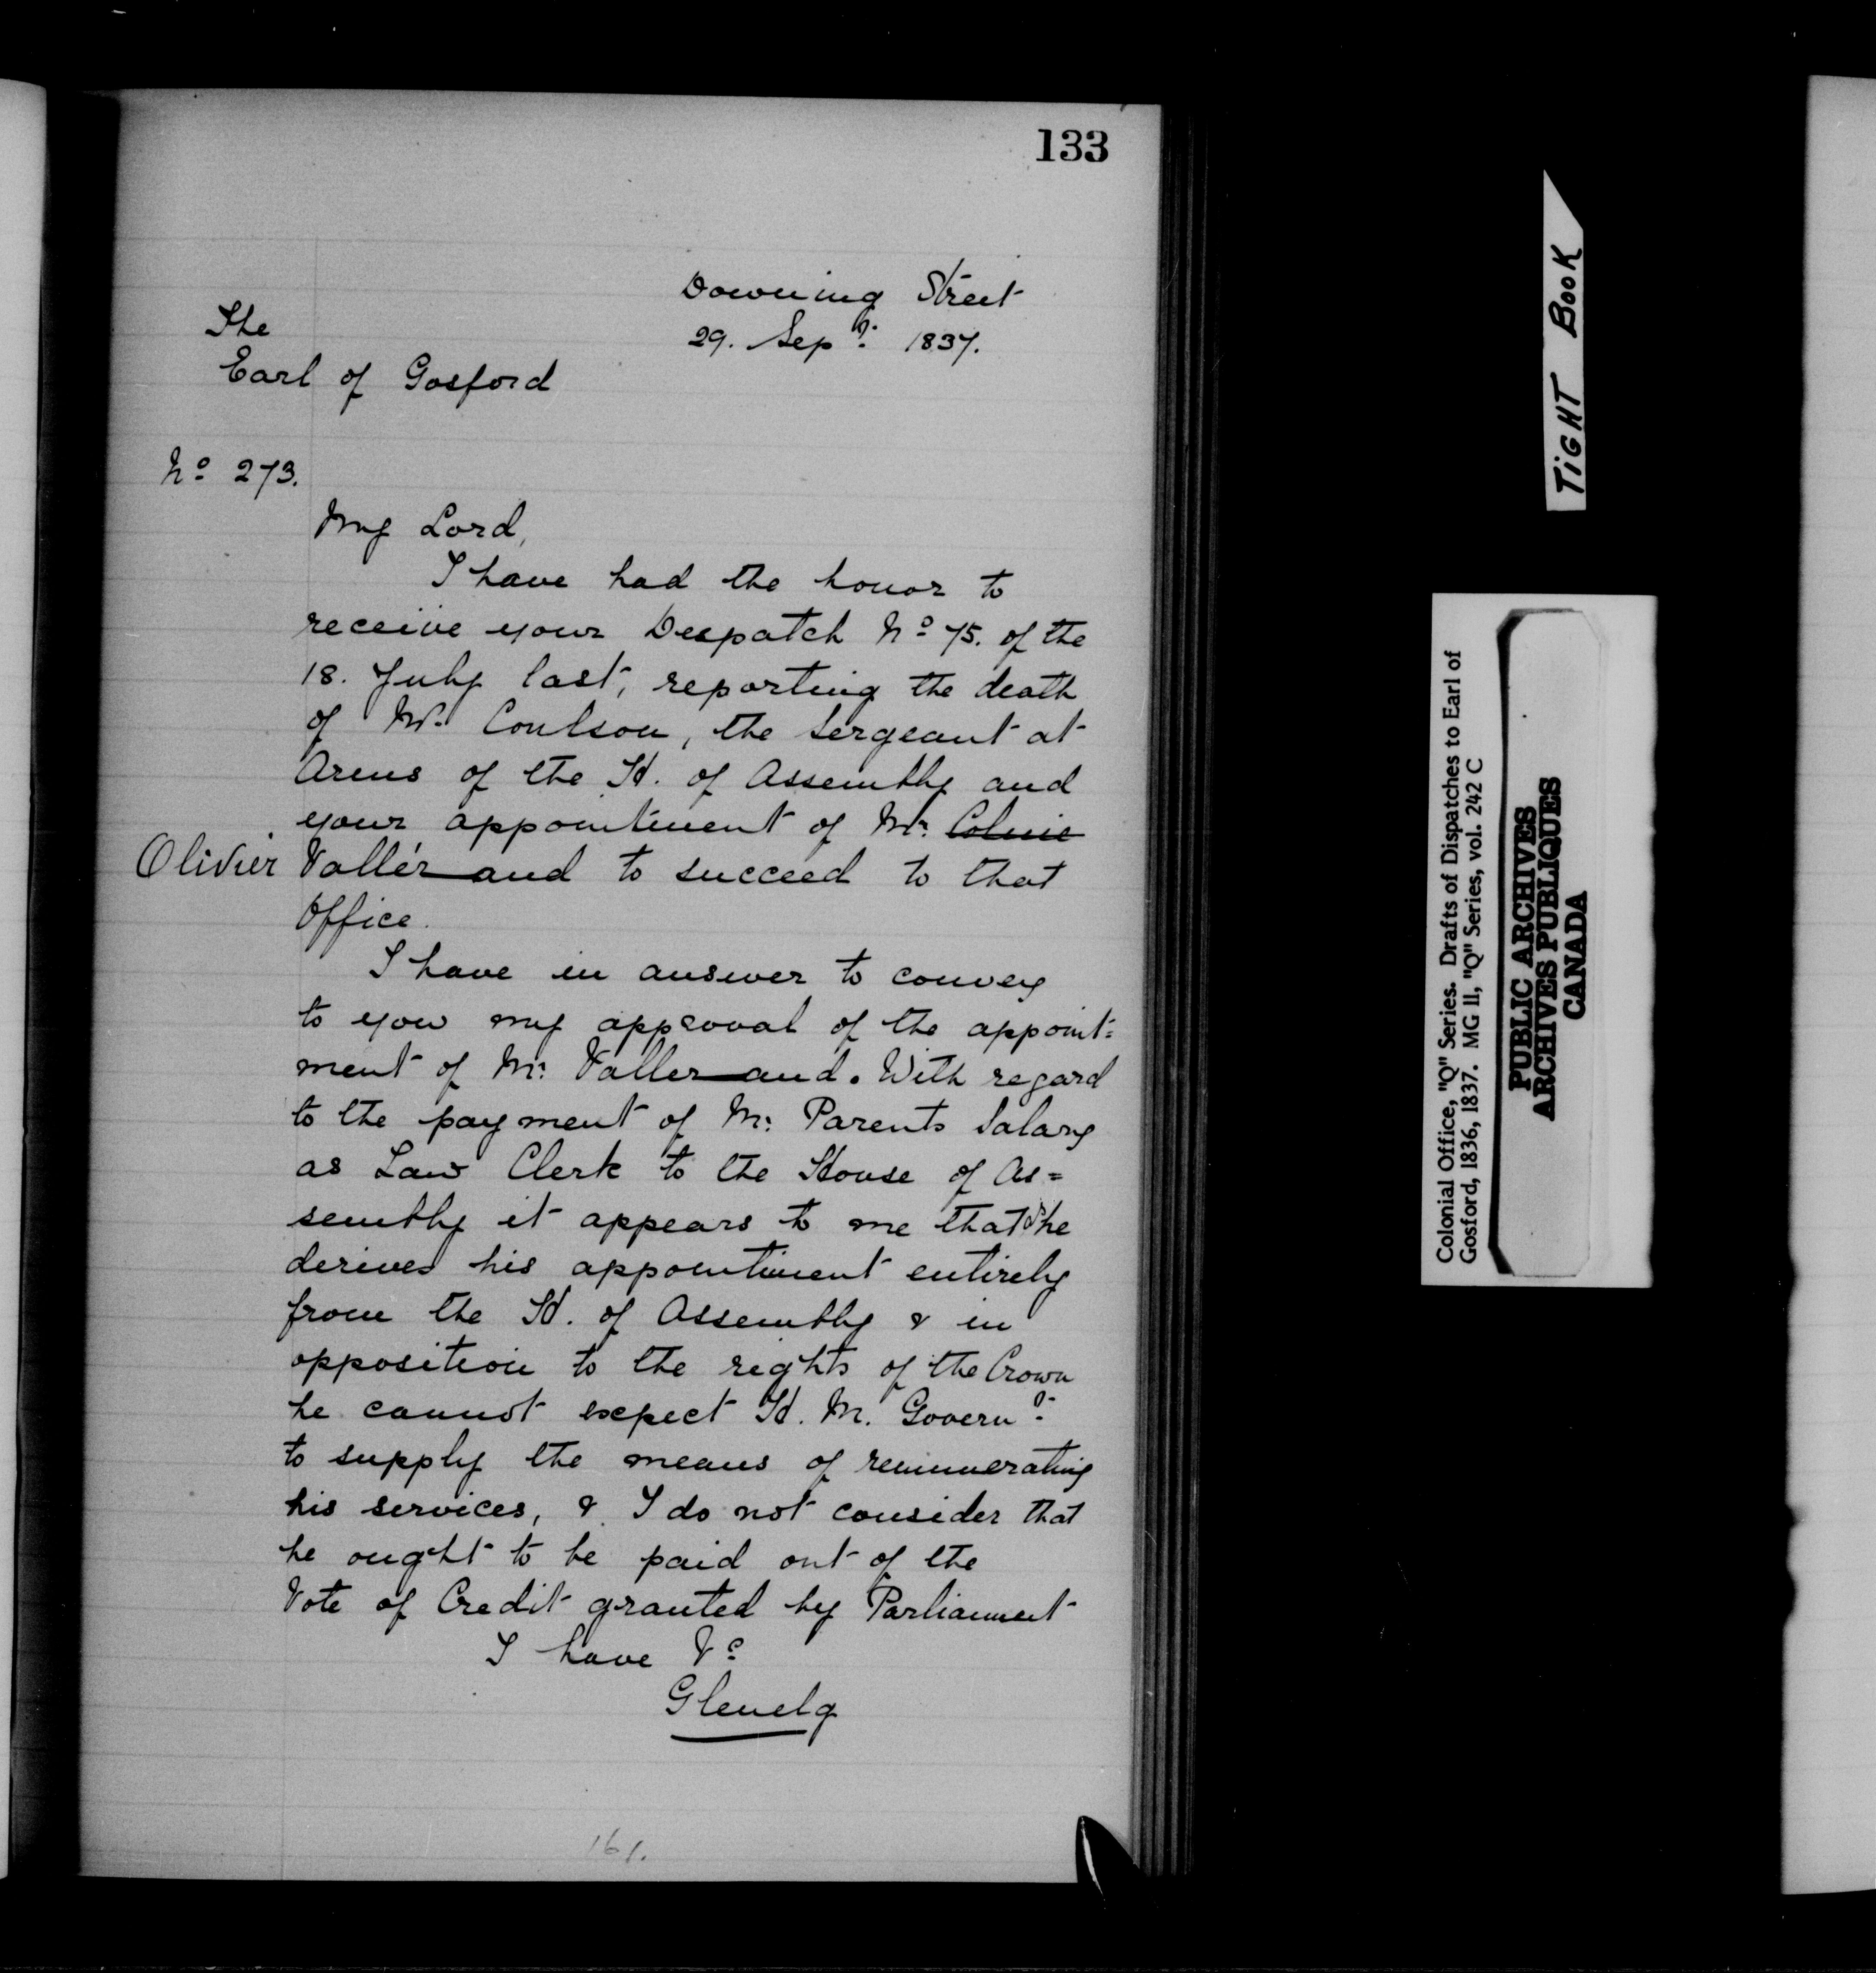 133
Downing Street
29. Sepr. 1837.
The
Earl of Gosford
No 273.
My Lord,
I have had the honor to
receive your Despatch No 75. of the
18. July last, reporting the death
of Mr. Coulson, the Sergeant at
Arms of the H. of Assembly and
your appointment of Mr. Colvie
Olivier Vallérand to succeed to that
Office.
I have in answer to convey
to you my approval of the appoint=
ment of Mr. Vallerand. With regard
to the payment of Mr. Parents Salary
as Law Clerk to the House of As=
sembly it appears to me that as he
derives his appointment entirely
from the H. of Assembly & in
opposition to the rights of the Crown
he cannot expect H. M. Governt.
to supply the means of remunerating
his services, & I do not consider that
he ought to be paid out of the
Vote of Credit granted by Parliament
I have &c
Glenelg
161.
TIGHT BOOK
Colonial Office, "Q" Series. Drafts of Dispatches to Earl of
Gosford, 1836, 1837. MG 11, "Q" Series, vol. 242 C
PUBLIC ARCHIVES
ARCHIVES PUBLIQUES
CANADA